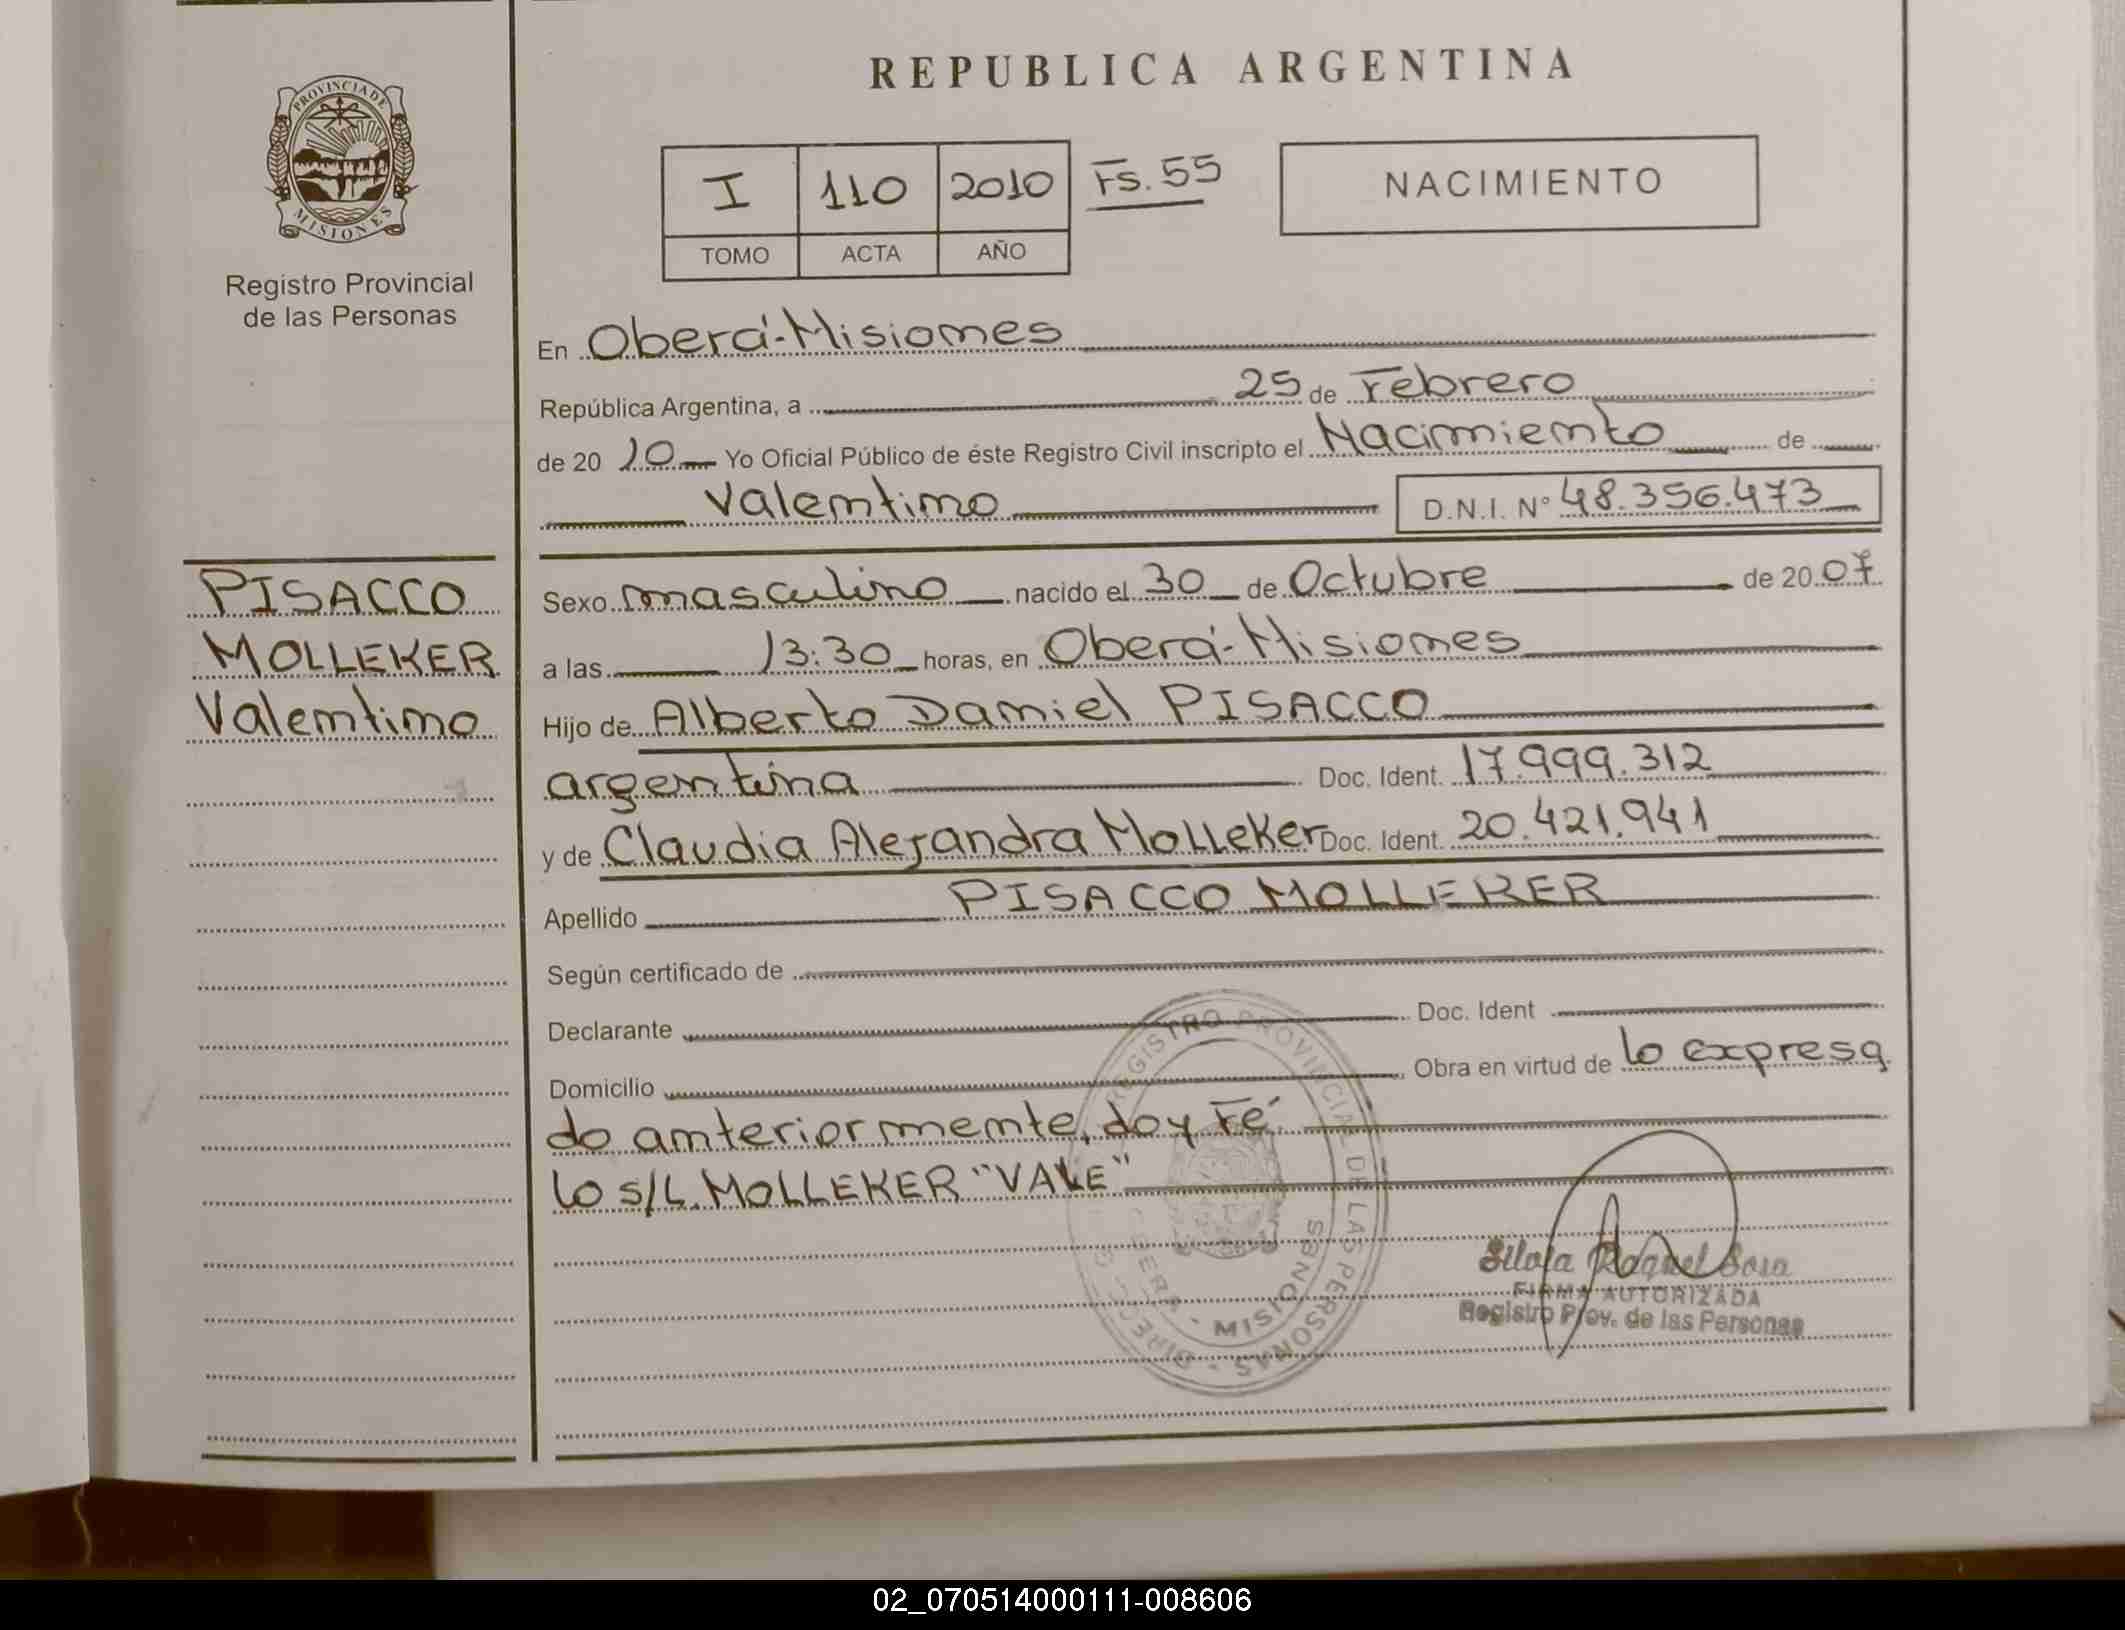 REPUBLICA ARGENTINA
PROVINCIA DE MISIONES
Registro Provincial
de las Personas
I 110 2010 Fs. 55
TOMO ACTA AÑO
NACIMIENTO
En Oberá-Misiones
República Argentina, a 25 de Febrero
de 20 10 Yo Oficial Público de éste Registro Civil inscripto el Nacimiento de
Valentino D.N.I. N° 48.356.473
PISACCO
MOLLEKER
Valentino
Sexo masculino nacido el 30 de Octubre de 20 07
a las 13:30 horas, en Oberá-Misiones
Hijo de Alberto Daniel PISACCO
argentina Doc. Ident. 17.999.312
y de Claudia Alejandra Molleker Doc. Ident. 20.421.941
Apellido PISACCO MOLLEKER
Según certificado de
Declarante Doc. Ident
Domicilio Obra en virtud de lo expresa
do anteriormente, doy Fé.
lo s/L. MOLLEKER "VALE"
REGISTRO PROVINCIAL DE LAS PERSONAS
MISIONES
Silvia Raquel Sosa
FIRMA AUTORIZADA
Registro Prov. de las Personas
02_070514000111-008606